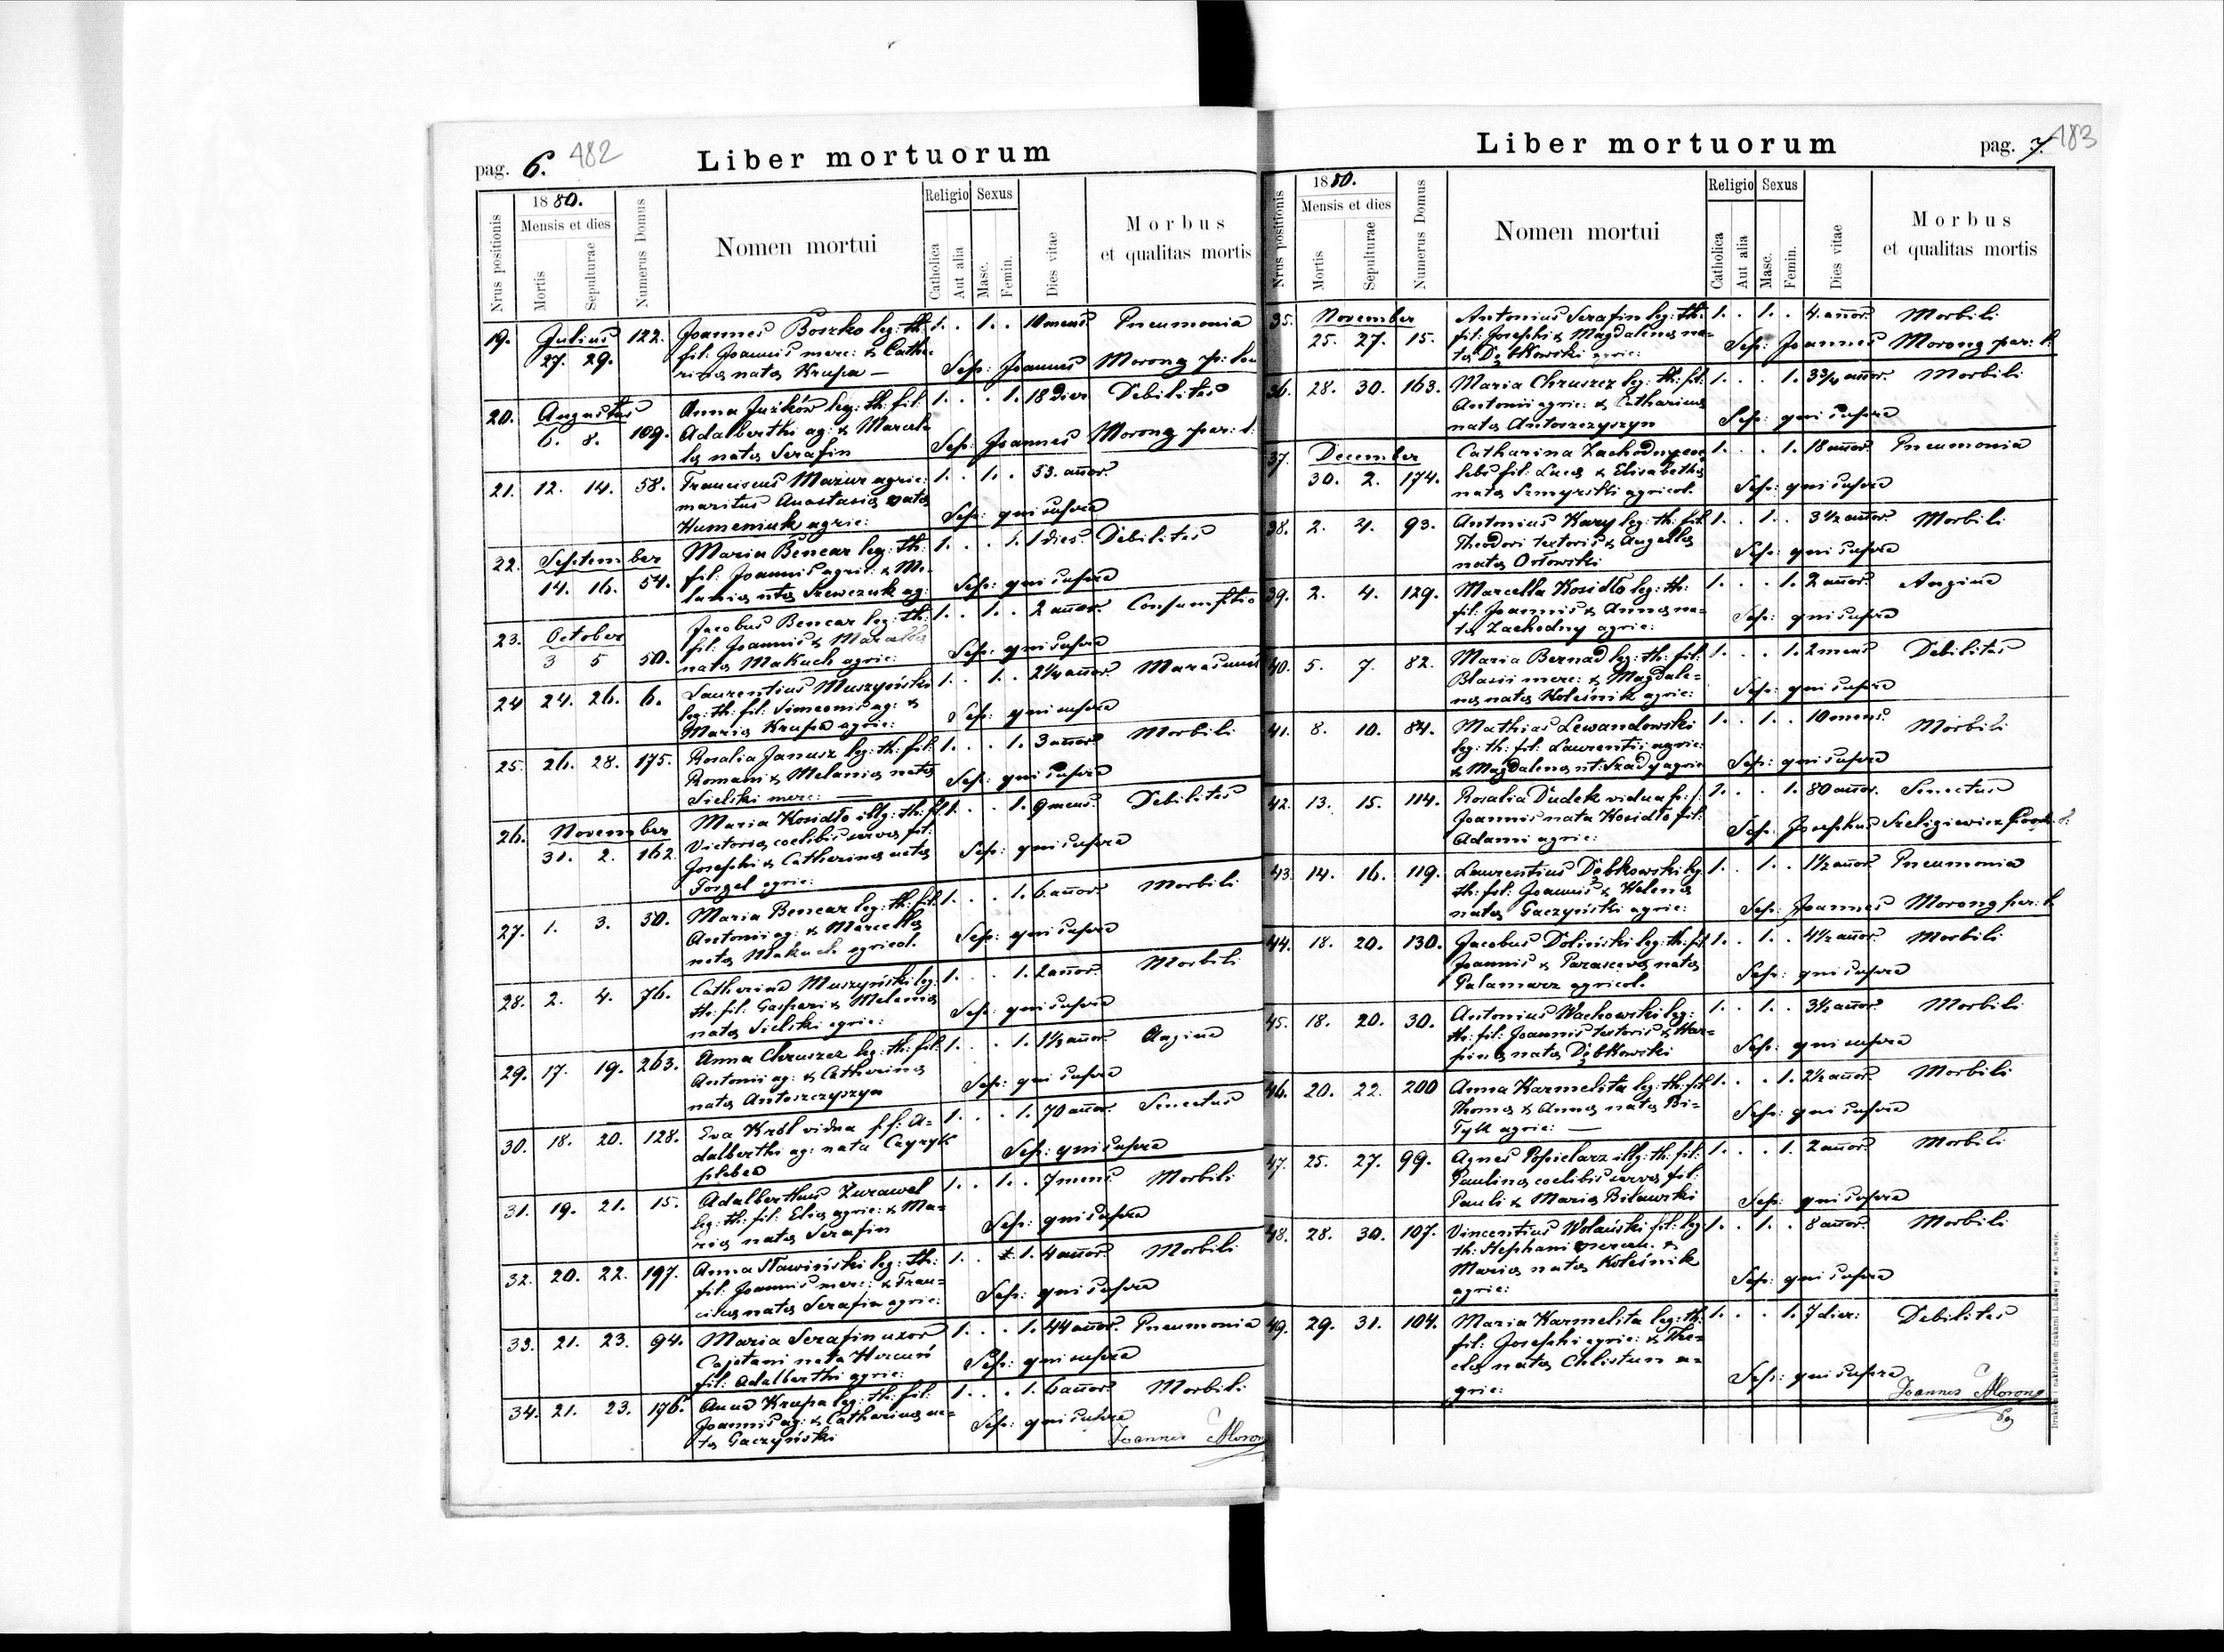 pag. 6. 482 Liber mortuorum
Nrus positionis 1880. Mensis et dies Mortis Sepulturae Numerus Domus Nomen mortui Religio Catholica Aut alia Sexus Masc. Femin. Dies vitae Morbus et qualitas mortis
19. Julius 122. Joannes Boszko leg: th: 1. . 1. . 10 mens. Pneumonia
27. 29. fil: Joannis merc: & Cathe-
rinae natae Krupa — Sep: Joannes Morong p: 
20. Augustus Anna Juźków leg: th: fil: 1. . . 1. 18 dier Debilitas
6. 8. 109. Adalberthi ag: & Marcel-
lae natae Serafin Sep: Joannes Morong par: l:
21. 12. 14. 58. Franciscus Mazur agric: 1. . 1. . 53. annor.
maritus Anastasiae natae
Humeniuk agric: Sep: qui supra
22. September Maria Bencar leg: th: 1. . . 1. 1 dies. Debilitas
14. 16. 54. fil: Joannis agric: & Me-
laniae ntae Szewczuk ag: Sep: qui supra
23. October Jacobus Bencar leg: th: 1. . 1. . 2 annor. Consumptio
3 5 50. fil: Joannis & Marcellae
natae Makuch agric: Sep: qui supra
24 24. 26. 6. Laurentius Muszyński 1. . 1. . 2 1/4 annor. Marasmus
leg: th: fil: Simeonis ag: &
Mariae Krupa agric: Sep: qui supra
25. 26. 28. 175. Rosalia Janusz leg: th: fil: 1. . . 1. 3 annor. Morbili
Romani & Melaniae natae
Sielski merc: — Sep: qui supra
26. November Maria Kosidło illg: th: fil 1. . . 1. 9 mens. Debilitas
31. 2. 162. Victoriae coelibis servae fil:
Josephi & Catherinae natae Sep: qui supra
Forgel agric:
27. 1. 3. 50. Maria Bencar leg: th: fil: 1. . . 1. 6 annor. Morbili
Antonii ag: & Marcellae
natae Makuch agricol. Sep: qui supra
28. 2. 4. 76. Catherina Muszyński leg: 1. . . 1. 2 annor. Morbili
th: fil: Gasperi & Melaniae
natae Sielski agric: Sep: qui supra
29. 17. 19. 263. Anna Chruszcz leg: th: fil: 1. . . 1. 1 1/2 annor. Angina
Antonii ag: & Catherinae
natae Antoszczyszyn Sep: qui supra
30. 18. 20. 128. Eva Król vidua p. f: A- 1. . . 1. 70 annor. Senectus
dalberthi ag: nata Czyżyk
plebea Sep: qui supra
31. 19. 21. 15. Adalberthus Żurawel 1. . 1. . 7 mens Morbili
leg: th: fil: Eliae agric: & Ma-
riae natae Serafin Sep: qui supra
32. 20. 22. 197. Anna Sławiński leg: th: 1. . 1. 4 annor. Morbili
fil: Joannis merc: & Fran-
ciscae natae Serafin agric: Sep: qui supra
33. 21. 23. 94. Maria Serafin uxor 1. . . 1. 44 annor. Pneumonia
Cajetani nata Horcuń
fil: Adalberthi agric: Sep: qui supra
34. 21. 23. 176. Anna Krupa leg: th: fil: 1. . . 1. 6 annor. Morbili
Joannis ag: & Catharinae na-
tae Gaczyński Sep: qui supra
Joannes Morong
Liber mortuorum pag. 7. 483
Nrus positionis 1880. Mensis et dies Mortis Sepulturae Numerus Domus Nomen mortui Religio Catholica Aut alia Sexus Masc. Femin. Dies vitae Morbus et qualitas mortis
35. November Antonius Serafin leg: th: 1. . 1. . 4. annor. Morbili
25. 27. 15. fil: Josephi & Magdalenae na-
tae Dąbkowski agric: Sep: Joannes Morong par: l:
36. 28. 30. 163. Maria Chruszcz leg: th: fil: 1. . . 1. 3 3/4 annor. Morbili
Antonii agric: & Catharinae
natae Antoszczyszyn Sep: qui supra
37. December Catharina Zachodny coe- 1. . . 1. 18 annor. Pneumonia
30. 2. 174. lebs fil: Lucae & Elisabethae
natae Szmyrski agricol. Sep: qui supra
38. 2. 4. 93. Antonius Kary leg: th: fil 1. . 1. . 3 1/2 annor. Morbili
Theodori textoris & Angellae
natae Orłowski Sep: qui supra
39. 2. 4. 129. Marcella Kosidło leg: th: 1. . . 1. 2 annor. Angina
fil: Joannis & Annae na-
tae Zachodny agric: Sep: qui supra
40. 5. 7. 82. Maria Bernad leg: th: fil: 1. . . 1. 2 mens Debilitas
Blasii merc: & Magdale-
nae natae Koleśnik agric: Sep: qui supra
41. 8. 10. 84. Mathias Lewandowski 1. . 1. . 10 mens. Morbili
leg: th: fil: Laurentii agric:
& Magdalenae nt: Szady agric Sep: qui supra
42. 13. 15. 114. Rosalia Dudek vidua p: f: 1. . . 1. 80 annor. Senectus
Joannis nata Kosidło fil:
Adami agric: Sep: Josephus Szeligiewicz
43. 14. 16. 119. Laurentius Dąbkowski leg 1. . 1. . 1 1/2 annor. Pneumonia
th: fil: Joannis & Helenae
natae Gaczyński agric: Sep: Joannes Morong par: l.
44. 18. 20. 130. Jacobus Doliński leg: th: fil 1. . 1. . 4 1/2 annor. Morbili
Joannis & Parascevae natae
Palamarz agricol. Sep: qui supra
45. 18. 20. 30. Antonius Wachowski leg: 1. . 1. . 3 1/2 annor. Morbili
th: fil: Joannis textoris & Har-
pinae natae Dąbkowski Sep: qui supra
46. 20. 22. 200 Anna Karmelita leg: th: fil 1. . . 1. 2 1/2 annor. Morbili
Thomae & Annae natae Bi-
Tyk agric: — Sep: qui supra
47. 25. 27. 99. Agnes Popielarz illg: th: fil: 1. . . 1. 2 annor. Morbili
Paulinae coelibis servae fil:
Pauli & Mariae Bilawski Sep: qui supra
48. 28. 30. 107. Vincentius Wolański fil: leg 1. . 1. . 8 annor. Morbili
th: Stephani mercen. &
Mariae natae Koleśnik Sep: qui supra
agric:
49. 29. 31. 104. Maria Karmelita leg: th: 1. . . 1. 7 dier: Debilitas
fil: Josephi agric: & The-
clae natae Chlistun a-
gric: Sep: qui supra
Joannes Morong
Drukiem i nakładem drukarni Ludowej we Lwowie.